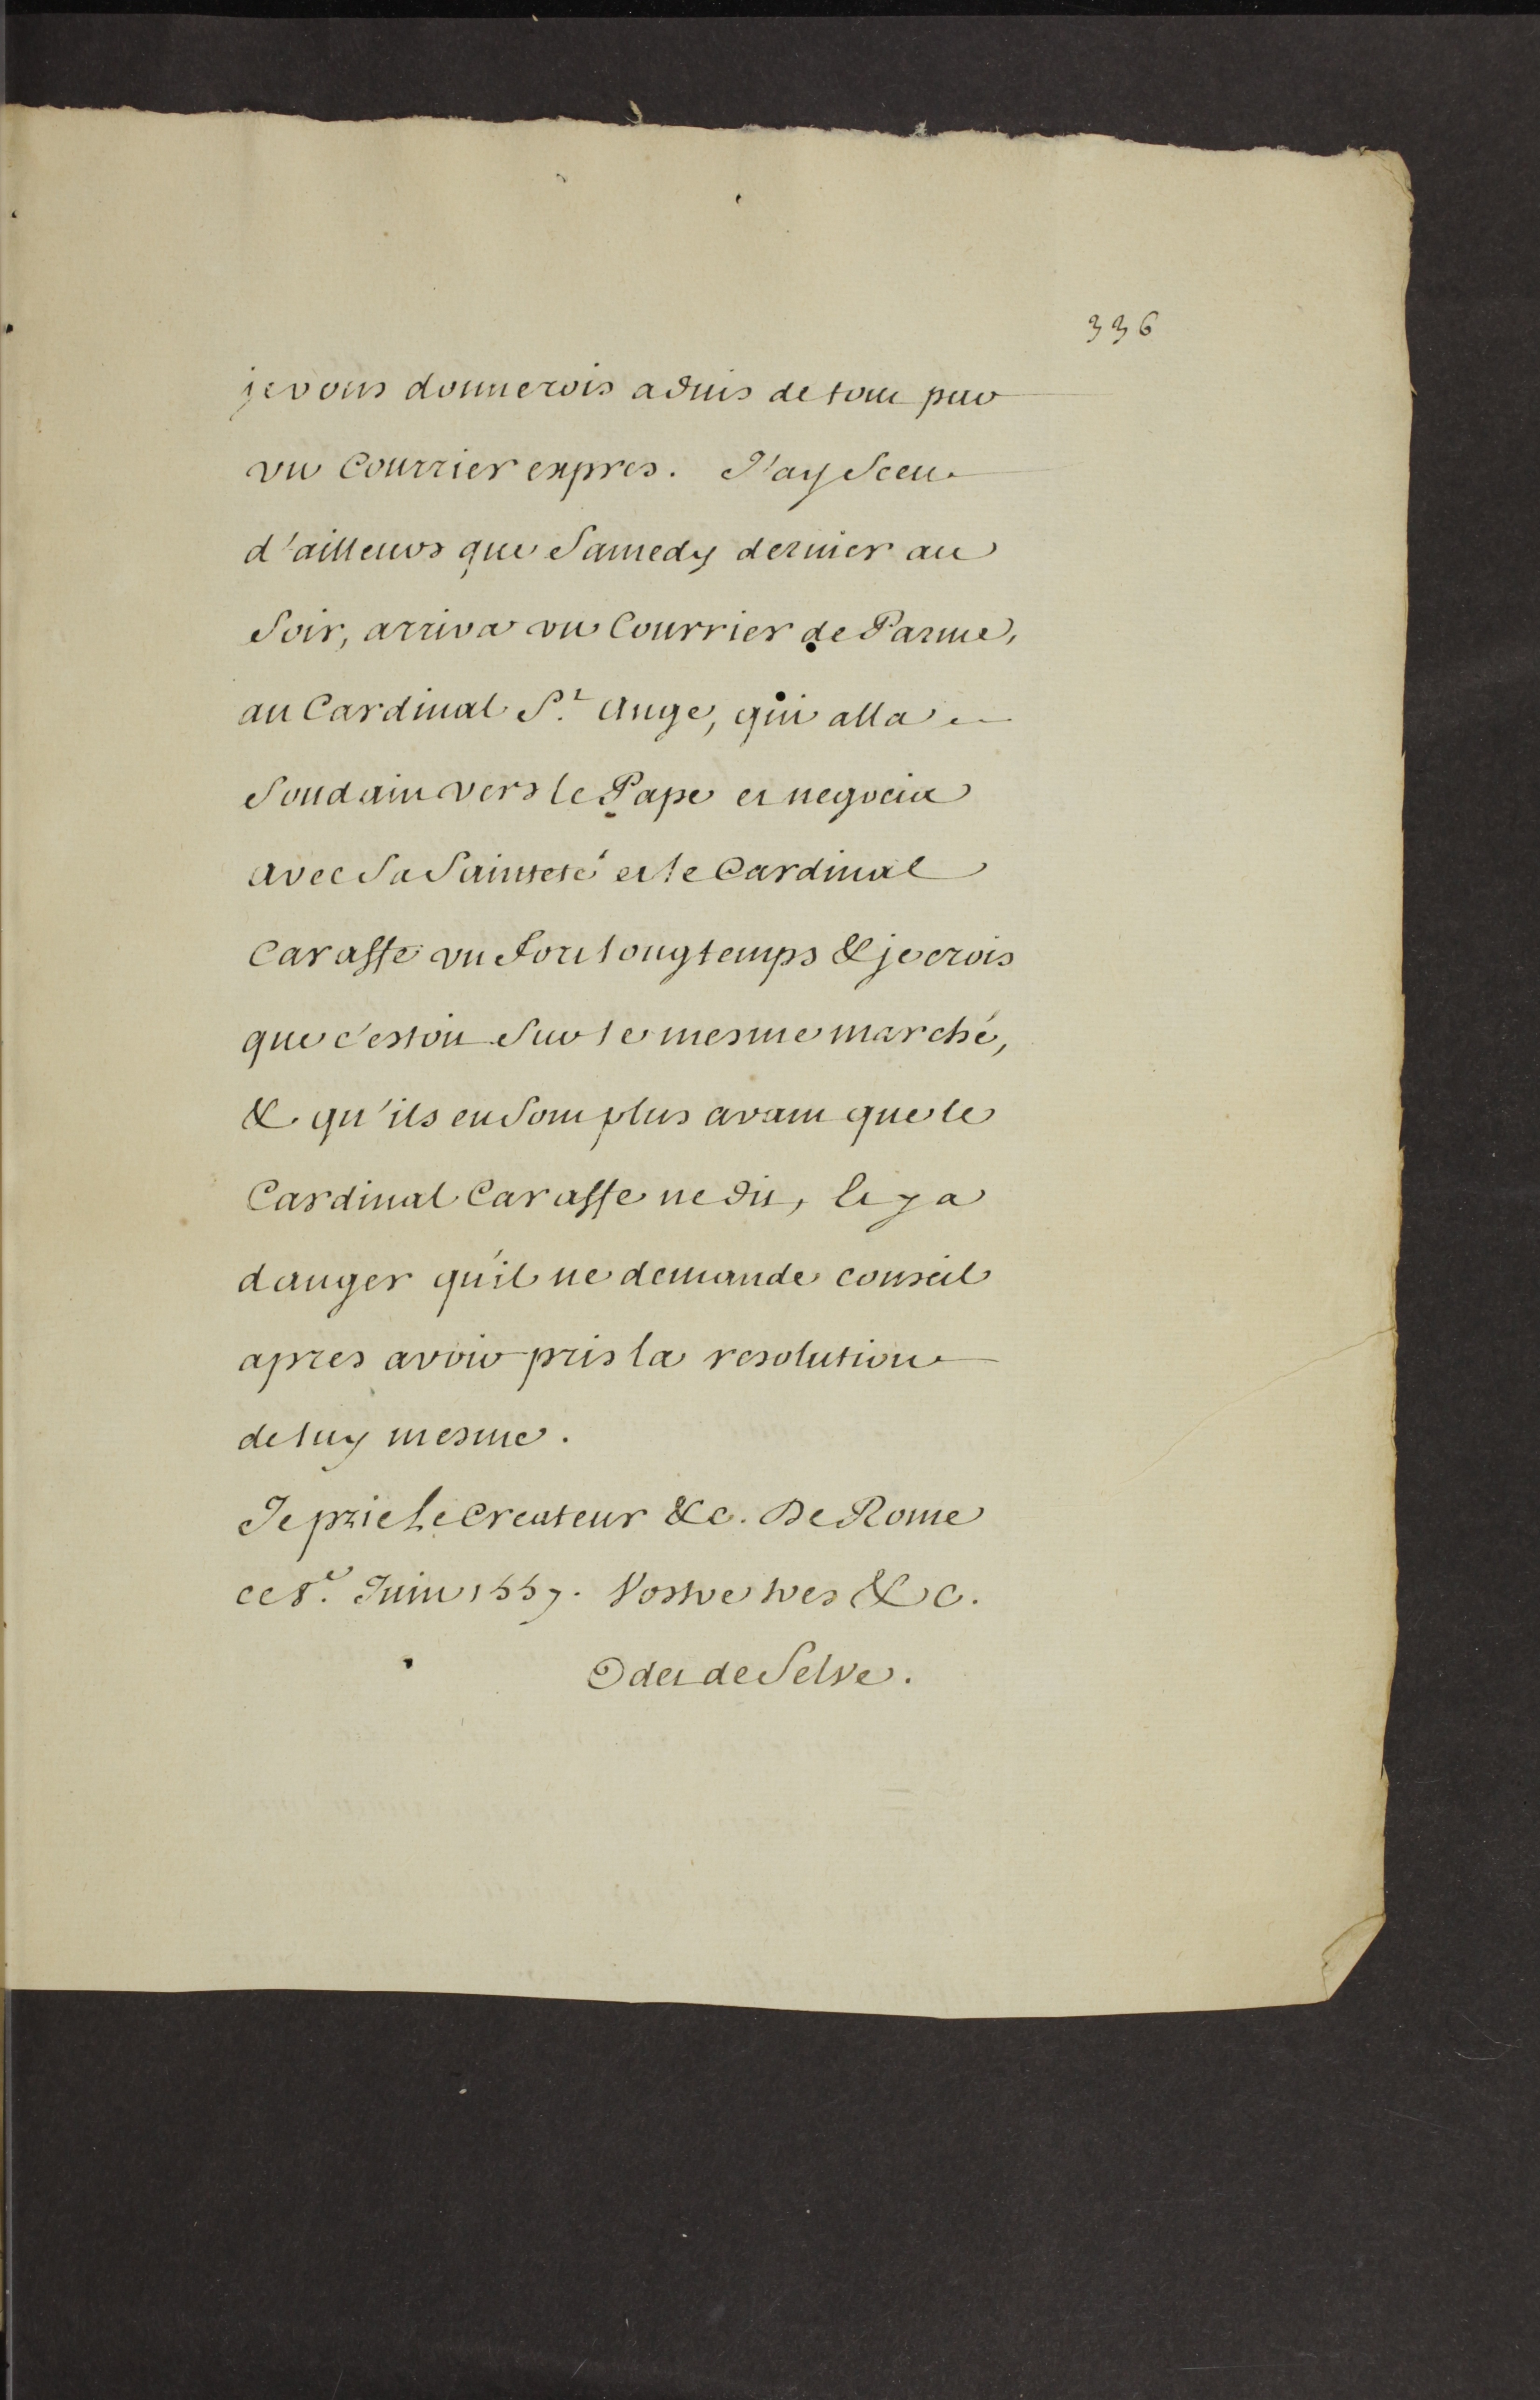 336
je vous donnerois aduis de tout par
vn Courrier expres. J'ay Sceu
d'ailleurs que Samedy dernier au
Soir, arriva vn Courrier de Parme,
au Cardinal S.t Ange, qui alla
Soudain vers le Pape et negocia
avec Sa Sainteté et le Cardinal
Caraffe vn Fort longtemps & je crois
que c'estoit Sur le mesme marché,
& qu'ils en Sont plus avant que le
Cardinal Caraffe ne dit, et y a
danger qu'il ne demande conseil
apres avoir pris la resolution
de luy mesme.
Je prie le Createur &c. De Rome
ce 8.e Juin 1557. Vostre tres &c.
Odet de Selve.